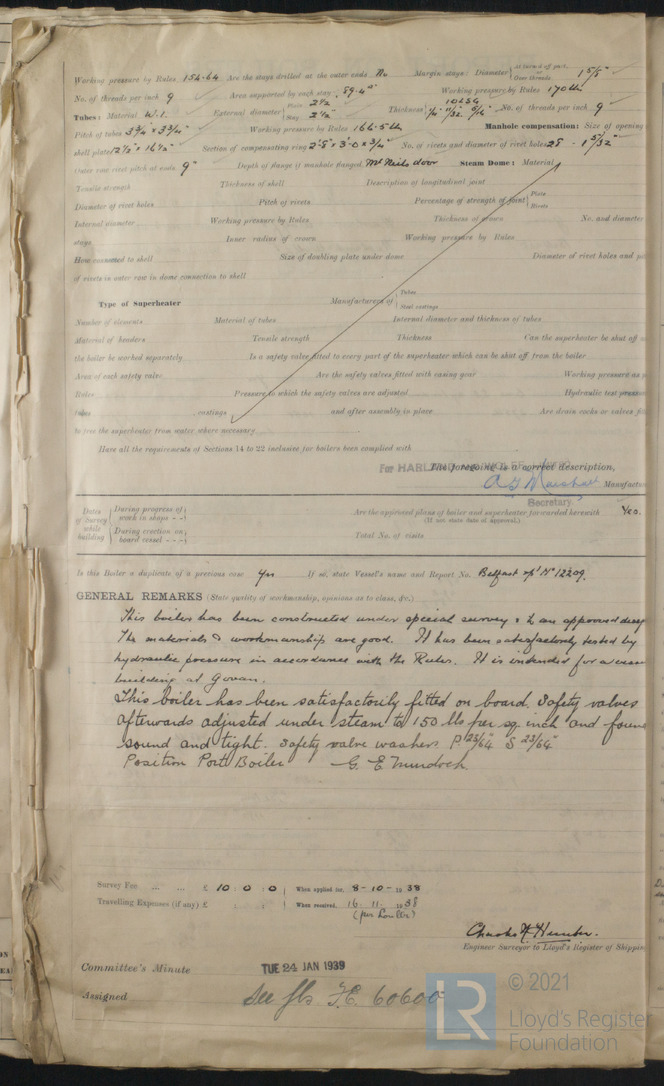 Working pressure by Rules 154.64 Are the stays drilled at the outer ends No Margin stays: Diameter { At turned off part, or Over threads 1 5/8"
No. of threads per inch 9 Area supported by each stay 89.4" Working pressure by Rules 170 lb
Tubes: Material W.I. External diameter { Plain 2 1/2 Stay 2 1/2" Thickness No. of threads per inch 9
Pitch of tubes 3 3/4" x 3 3/4" Working pressure by Rules 166.5 lb Manhole compensation: Size of opening
shell plate 12 1/2" x 16 1/2" Section of compensating ring 2'8" x 3'0" x 3/4" No. of rivets and diameter of rivet holes 28 - 1 5/32"
Outer row rivet pitch at ends 9" Depth of flange if manhole flanged Mc Neils door Steam Dome: Material
Tensile strength Thickness of shell Description of longitudinal joint
Diameter of rivet holes Pitch of rivets Percentage of strength of joint { Plate Rivets
Internal diameter Working pressure by Rules Thickness of crown No. and diameter
stays Inner radius of crown Working pressure by Rules
How connected to shell Size of doubling plate under dome Diameter of rivet holes and
of rivets in outer row in dome connection to shell
Type of Superheater Manufacturers of { Tubes Steel castings
Number of elements Material of tubes Internal diameter and thickness of tubes
Material of headers Tensile strength Thickness Can the superheater be shut off
the boiler be worked separately Is a safety valve fitted to every part of the superheater which can be shut off from the boiler
Area of each safety valve Are the safety valves fitted with easing gear Working pressure as
Rules Pressure to which the safety valves are adjusted Hydraulic test pressure
tubes castings and after assembly in place Are drain cocks or valves
to free the superheater from water where necessary
Have all the requirements of Sections 14 to 22 inclusive for boilers been complied with
For The foregoing is a correct description,
Manufactu
Secretary
Dates of Survey while building { During progress of work in shops - - Are the approved plans of boiler and superheater forwarded herewith Yes.
(If not state date of approval.)
During erection on board vessel - - - Total No. of visits
Is this Boiler a duplicate of a previous case Yes If so, state Vessel's name and Report No. Belfast rpt No 12209.
GENERAL REMARKS (State quality of workmanship, opinions as to class, &c.)
This boiler has been constructed under special survey & to an approved desig
The materials & workmanship are good. It has been satisfactorily tested by
hydraulic pressure in accordance with the Rules. It is intended for a vessel
building at Govan.
This boiler has been satisfactorily fitted on board. Safety valves
afterwards adjusted under steam to 150 lbs per sq inch and foun
sound and tight. Safety valve washers P 23/64" S 23/64"
Position Port Boiler G. E Murdoch
Survey Fee ... ... £ 10 : 0 : 0 When applied for, 8-10-1938
Travelling Expenses (if any) £ : : When received, 16. 11. 1938
Engineer Surveyor to Lloyd's Register of Shippin
Committee's Minute TUE 24 JAN 1939
Assigned See Gls. F.E. 60600
LR © 2021
Lloyd's Register
Foundation